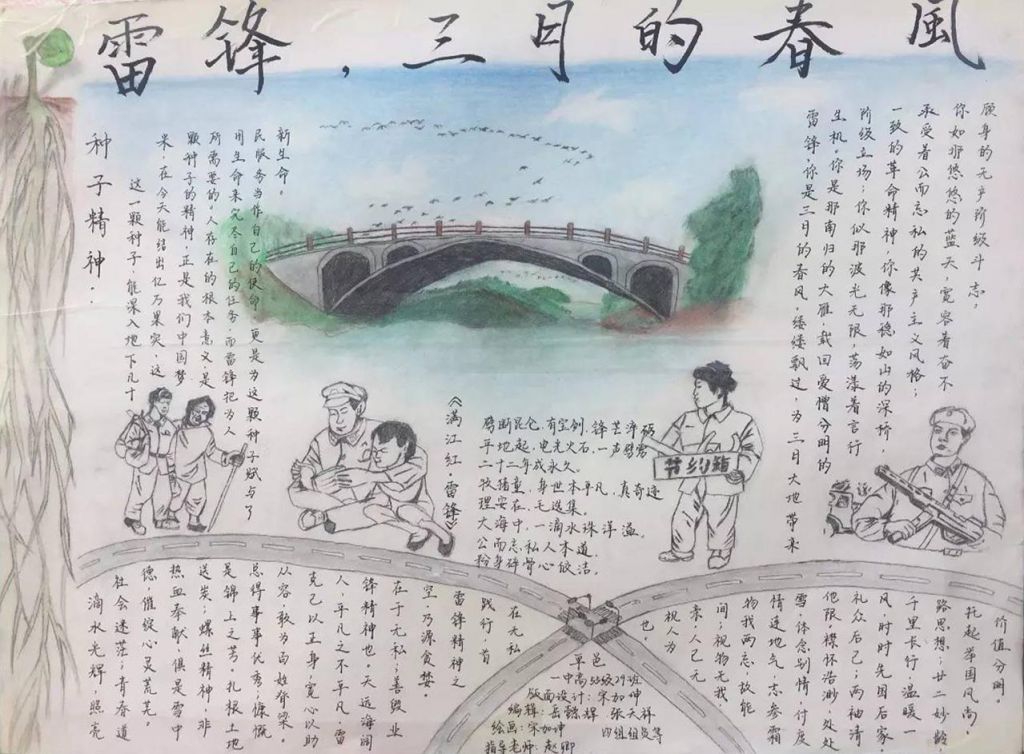 雷锋，三月的春風
种子精神。
这一颗种子，能深入地下几十
米，在今天能结出亿万果实，这
颗种子的精神，正是我们中国梦
所需要的。人存在的根本意义，是
用生命来完尽自己的任务，而雷锋把为人
民服务当作自己的使命，更是为这颗种子赋与了
新生命。
雷锋，你是三月的春风，缕缕飘过，为三月大地带来
生机。你是那南归的大雁，载回爱憎分明的
阶级立场；你似那波光无限，荡漾着言行
一致的革命精神，你像那稳如山的深桥，
承受着公而忘私的共产主义风格；
你如那悠悠的蓝天，宽容着奋不
顾身的无产阶级斗志，
《满江红·雷锋》
劈断昆仑，有宝剑，锋芒淬砺
平地起，电光火石，一声劈雳
二十二年成永久。
放猪童，身世本平凡，真奇迹
理安在，毛选集。
大海中，一滴水珠洋溢
公而忘私人本道，
粉身碎骨心皎洁。
节约箱
滴水光辉，照亮
社会迷茫；青春道
德，催绽心灵荒芜。
热血奉献，俱是雪中
送炭；螺丝精神，非
是锦上之花。扎根土地
总得事事优秀；慷慨
从容，敢为百姓脊梁。
克己以正身，宽心以助
人，平凡之不平凡，雷
锋精神也。天远海阔
在于无私；善毁业
空，乃源贪婪。
雷锋精神之
践行，首
在无私
也。
视人为
亲，人己无
间；视物无我，
物我两忘，故能
情连地气，志参霜
雪，体念别情，忖度
他限。襟怀浩渺，处处
礼众后己；两袖清
风，时时先国后家
千里长行，温暖一
路思想；廿二妙龄
托起举国风尚，
价值分明。
一中高55级29班
版面设计：宋加坤
编辑：岳懿辉 张天祥
绘画：宋加坤 四组组员等
指导老师：赵卿